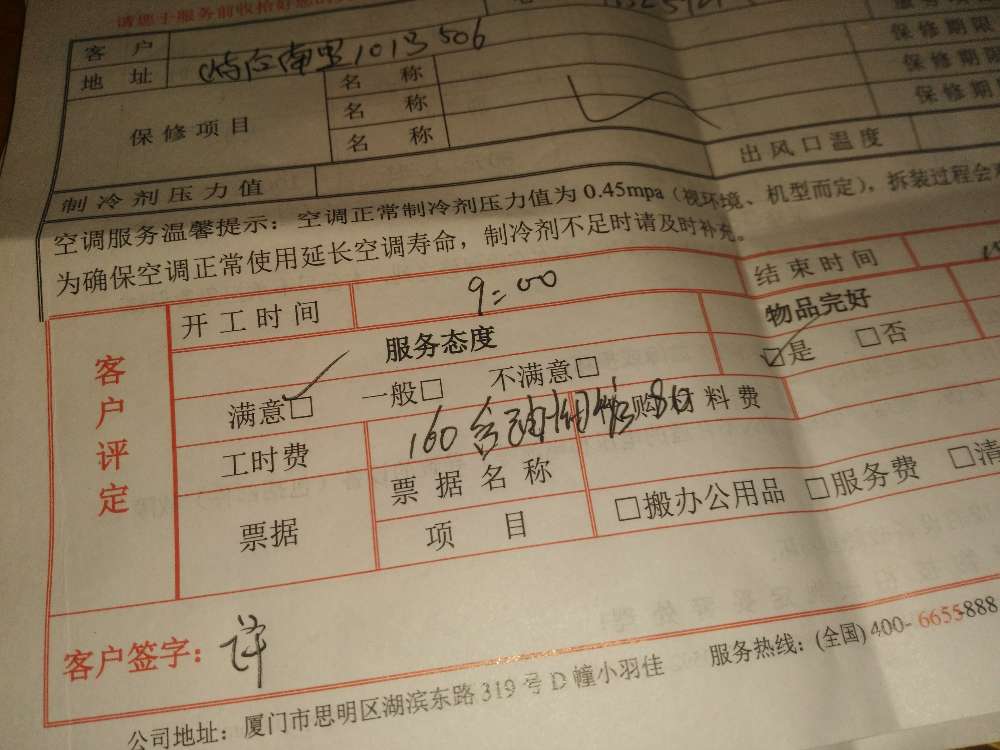 请您于服务前收拾好您的
客 户
地 址 南里101号506
保修期限
保修项目 名 称 保修期限
名 称 保修期
名 称
制冷剂压力值 出风口温度
空调服务温馨提示：空调正常制冷剂压力值为 0.45mpa（视环境、机型而定），拆装过程会
为确保空调正常使用延长空调寿命，制冷剂不足时请及时补充。
客户评定
开工时间 9:00 结束时间
服务态度 物品完好
满意☑ 一般□ 不满意□ ☑是 □否
工时费 160含 购 材料费
票据 票据名称
项 目 □搬办公用品 □服务费 □清
客户签字：许
公司地址：厦门市思明区湖滨东路 319 号 D 幢小羽佳 服务热线：(全国) 400-6655-888